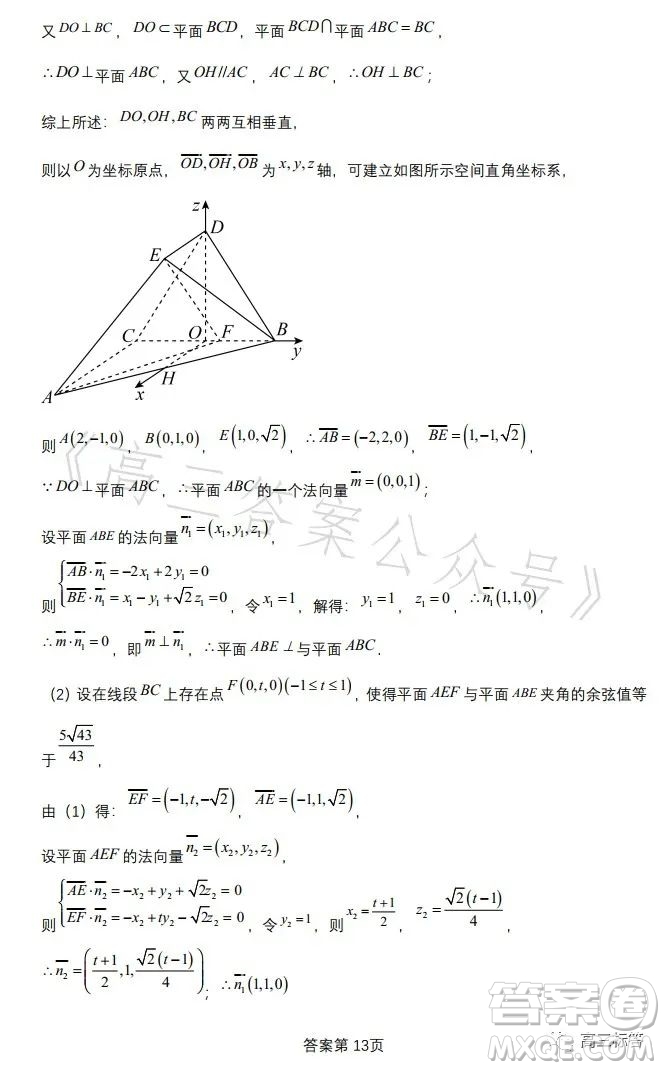 又 DO⊥BC， DO⊂平面 BCD，平面 BCD∩平面 ABC=BC，
∴DO⊥平面 ABC，又 OH//AC， AC⊥BC，∴OH⊥BC；
综上所述：DO,OH,BC 两两互相垂直，
则以 O 为坐标原点，$\overrightarrow{OD},\overrightarrow{OH},\overrightarrow{OB}$ 为 x,y,z 轴，可建立如图所示空间直角坐标系，
z
D
E
C
O
F
B
y
H
A
x
则 A(2,−1,0)，B(0,1,0)，E(1,0,√2)，∴$\overrightarrow{AB}$=(−2,2,0)，$\overrightarrow{BE}$=(1,−1,√2)，
∵DO⊥平面 ABC，∴平面 ABC 的一个法向量 $\overrightarrow{m}$=(0,0,1)；
设平面 ABE 的法向量 $\overrightarrow{n_1}$=(x₁,y₁,z₁)，
则 { $\overrightarrow{AB}\cdot\overrightarrow{n_1}$=−2x₁+2y₁=0
$\overrightarrow{BE}\cdot\overrightarrow{n_1}$=x₁−y₁+√2z₁=0 ，令 x₁=1，解得：y₁=1，z₁=0，∴$\overrightarrow{n_1}$(1,1,0)，
∴$\overrightarrow{m}\cdot\overrightarrow{n_1}$=0，即 $\overrightarrow{m}\perp\overrightarrow{n_1}$，∴平面 ABE⊥与平面 ABC.
（2）设在线段 BC 上存在点 F(0,t,0)(−1≤t≤1)，使得平面 AEF 与平面 ABE 夹角的余弦值等
于 $\frac{5\sqrt{43}}{43}$，
由（1）得：$\overrightarrow{EF}$=(−1,t,−√2)，$\overrightarrow{AE}$=(−1,1,√2)，
设平面 AEF 的法向量 $\overrightarrow{n_2}$=(x₂,y₂,z₂)，
则 { $\overrightarrow{AE}\cdot\overrightarrow{n_2}$=−x₂+y₂+√2z₂=0
$\overrightarrow{EF}\cdot\overrightarrow{n_2}$=−x₂+ty₂−√2z₂=0 ，令 y₂=1，则 $x_2=\frac{t+1}{2}$，$z_2=\frac{\sqrt{2}(t-1)}{4}$，
∴$\overrightarrow{n_2}=\left(\frac{t+1}{2},1,\frac{\sqrt{2}(t-1)}{4}\right)$；∴$\overrightarrow{n_1}$(1,1,0)
答案第 13页
《高二答案公众号》
高三标答
答案圈
MXQE.COM